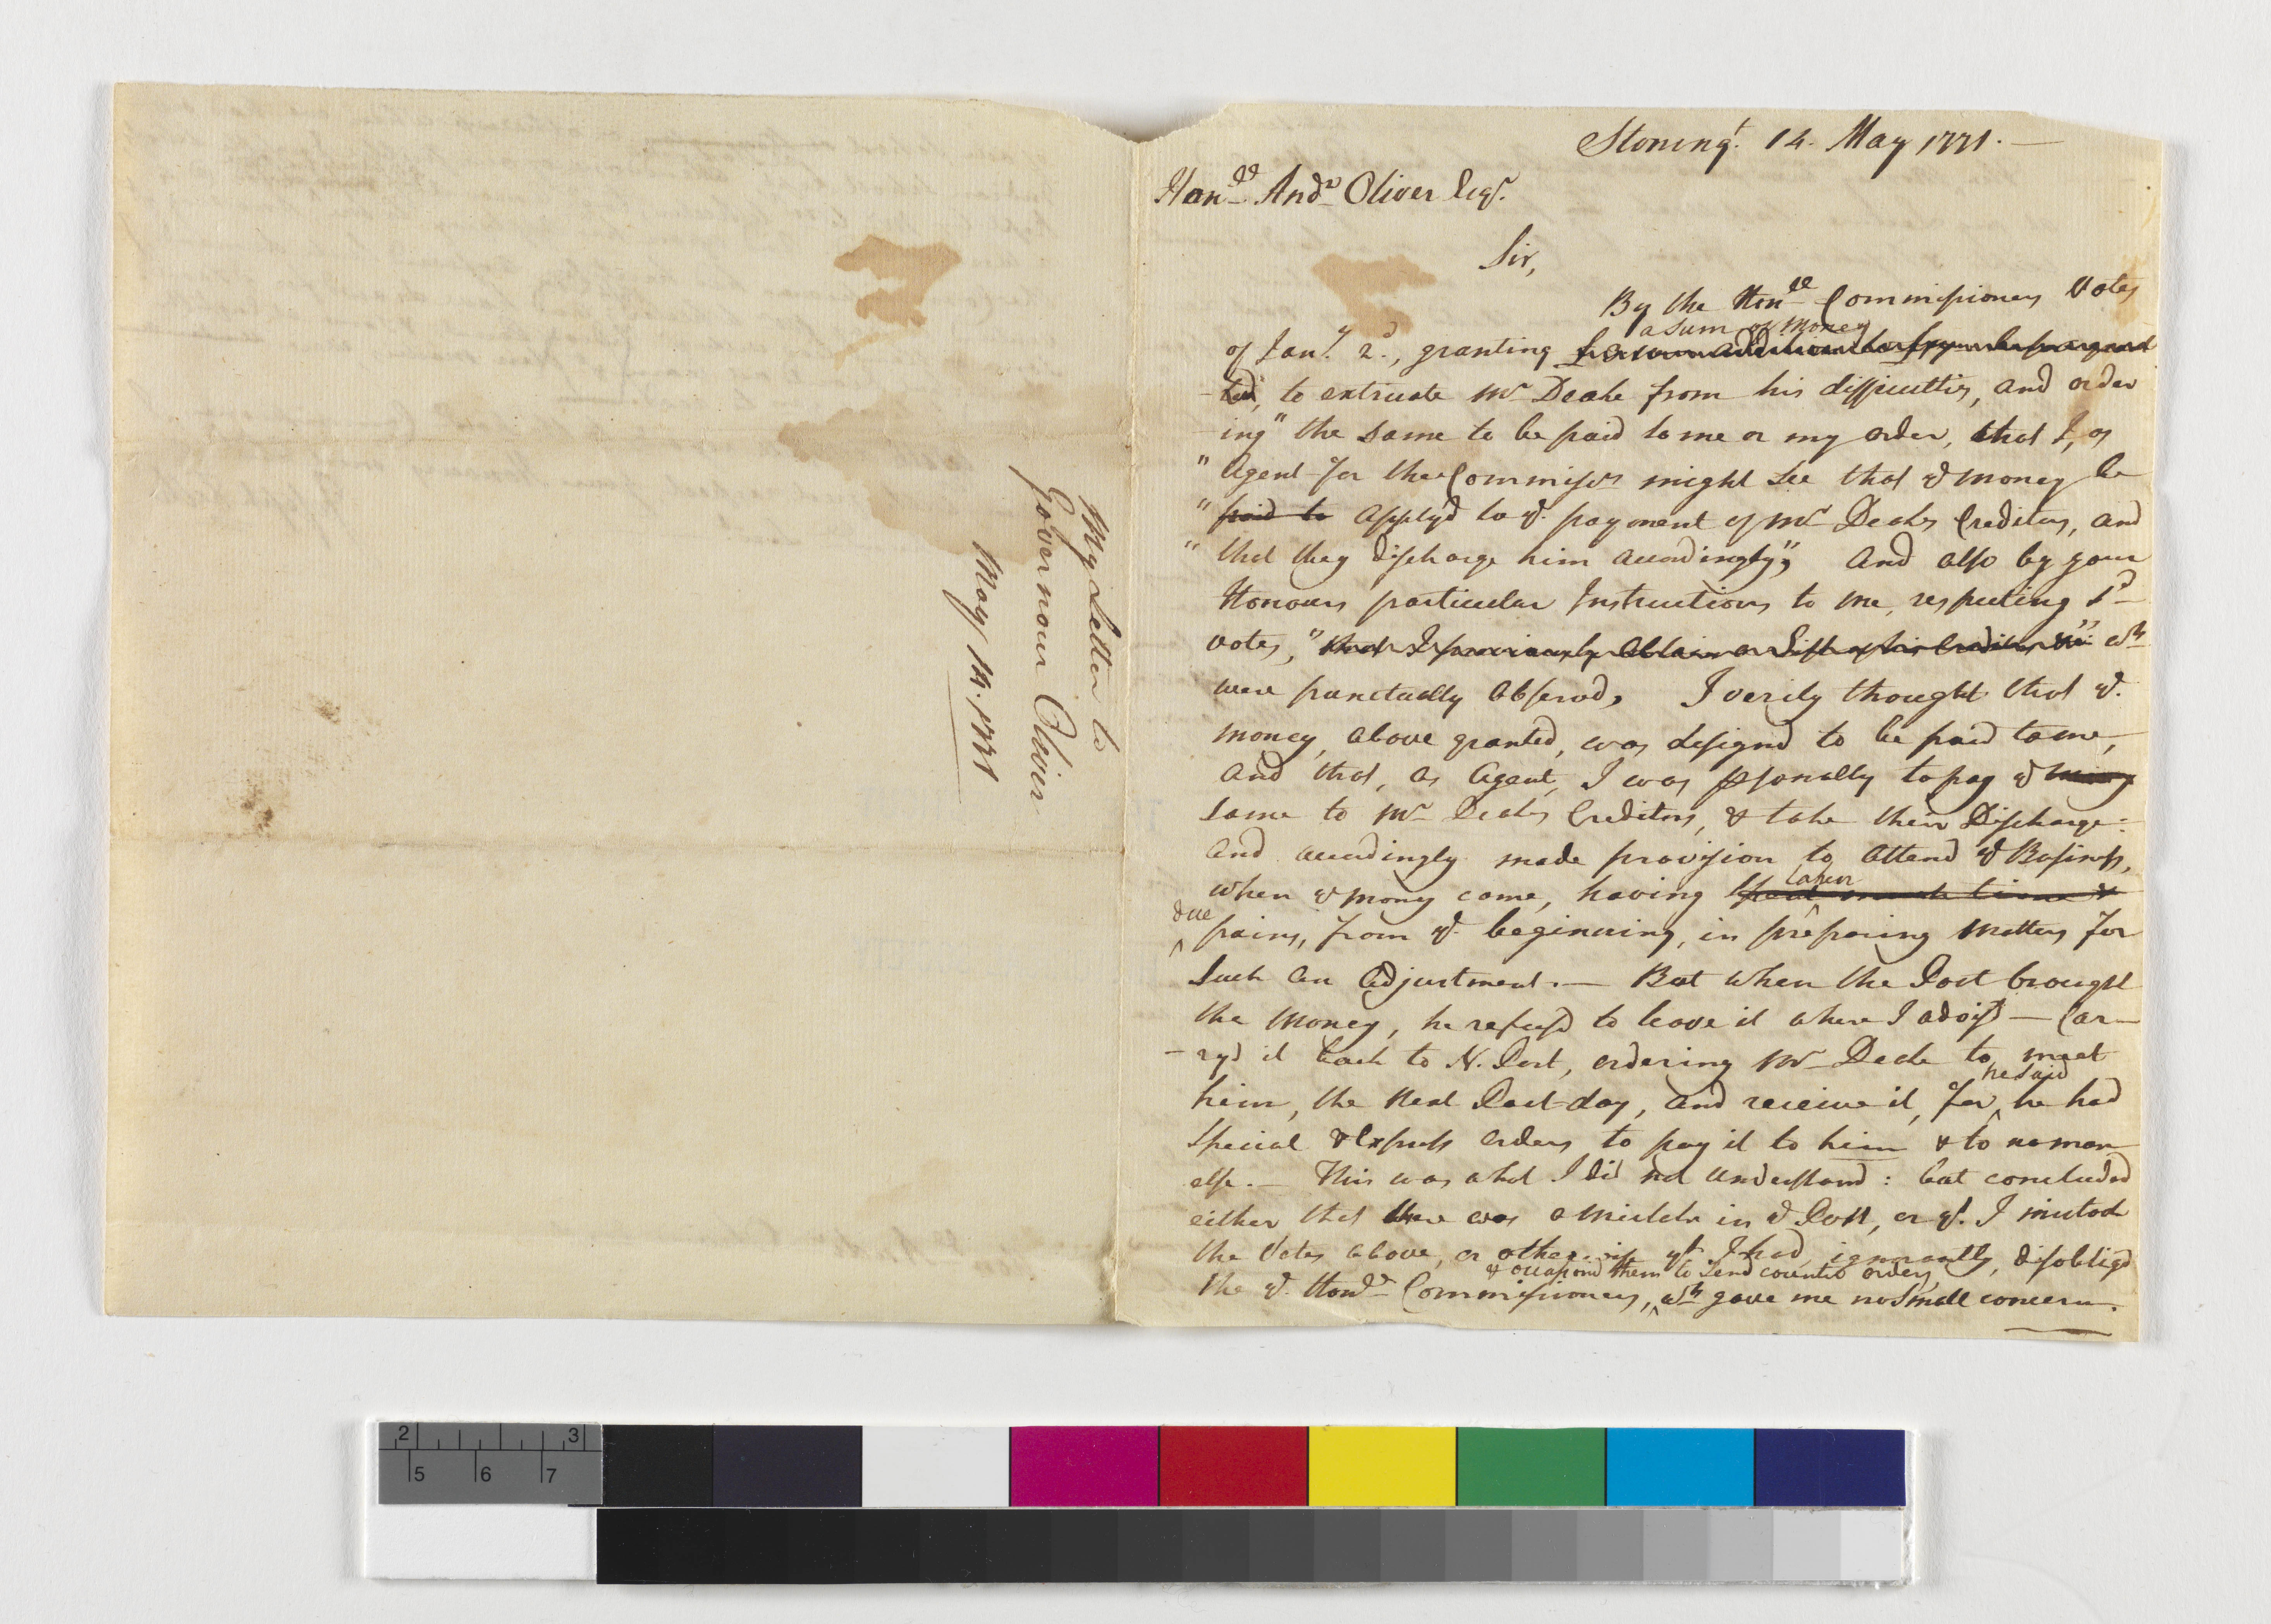 My Letter to
Governour Oliver
May 14. 1771
Stoningt. 14. May 1771.—
Hondd. Andw Oliver Esqr.
Sir,
By the Honle Commissioners Votes
of Jany. 2d., granting a sum of money
-ted, to extricate Mr Deake from his difficulties, and order
-ing "the same to be paid to me or my order, that I, as
"Agent for the Commissrs might see that ye money be
"paid to apply'd to ye. payment of Mr Deakes Creditors, and
"that they discharge him accordingly", And also by your
Honours particular Instructions to me, respecting sd
votes, "that I previously obtain a List of his Creditors &c" wh
were punctually observd, I verily thought that ye.
money, above granted, was designd to be paid to me,
and that, as Agent, I was psonally to pay ye money
same to Mr Deakes Creditors, & take their Discharge:
and accordingly made provision to attend ye Business,
when ye mony came, having spent much time & taken
due pains, from ye. beginning, in preparing matters for
such an Adjustment.— But when the Post brought
the money, he refus'd to leave it where I advis'd — Car-
-ry'd it back to N. Port, ordering Mr Deake to meet
him, the next Post-day, and receive it, for he said he had
special & express orders to pay it to him & to no man
else.— This was what I did not understand: but concluded
either that there was a mistake in ye Post, or yt. I mistook
the Votes above, or otherwise yt I had, ignorantly, disoblig'd
the ye. Hond Commissioners, & occasiond them to send counter orders, wh gave me no small concern.
2 3
5 6 7